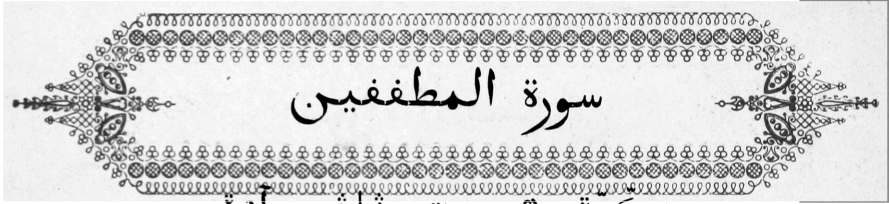 سورة المطففين